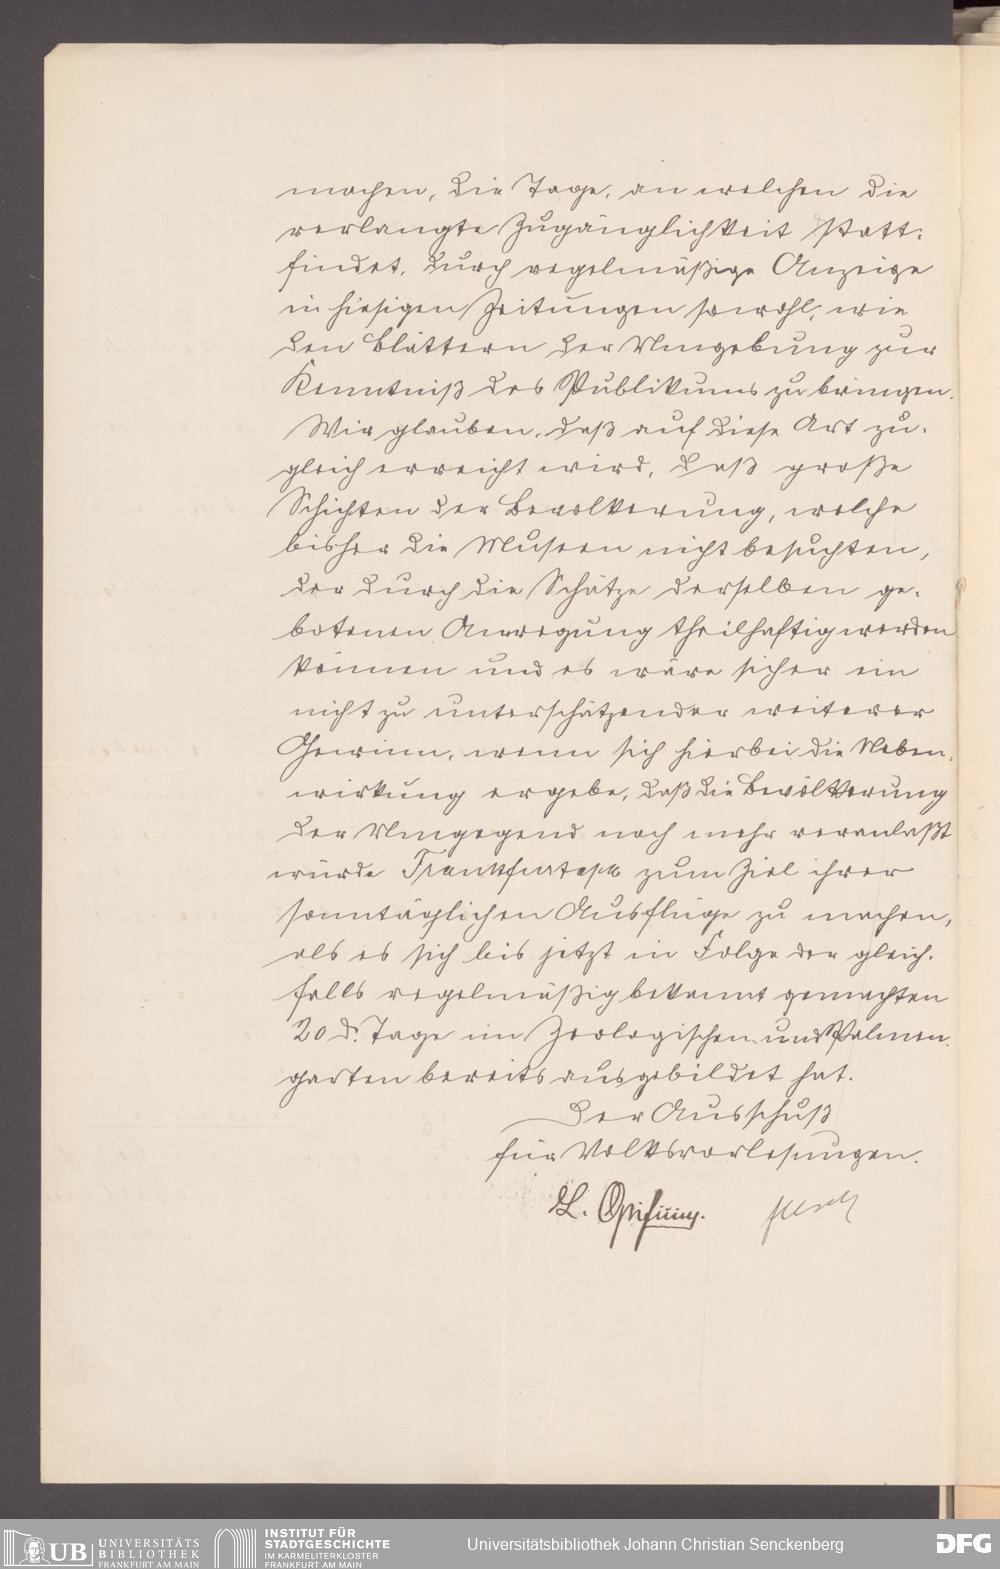 machen, die Tage, an welchen die
verlangte Zugänglichkeit statt-
findet, durch regelmäßige Anzeige
in hiesigen Zeitungen sowohl, wie
den Blättern der Umgebung zur
Kenntniß des Publikums zu bringen.
Wir glauben, daß auf diese Art zu-
gleich erreicht wird, daß große
Schichten der Bevölkerung, welche
bisher die Museen nicht besuchten,
der durch die Schätze derselben ge-
botenen Anregung theilhaftig werden
können und es wäre sicher ein
nicht zu unterschätzender weiterer
Gewinn, wenn sich hierbei die Neben-
wirkung ergebe, daß die Bevölkerung
der Umgegend noch mehr veranlaßt
würde Frankfurt a/M zum Ziel ihrer
sonntäglichen Ausflüge zu machen,
als es sich bis jetzt in Folge der gleich-
falls regelmäßig bekannt gemachten
20 d. Tage im Zoologischen und Palmen-
garten bereits ausgebildet hat.
Der Ausschuß
für Volksvorlesungen.
L. Opificius.
UB UNIVERSITÄTS
BIBLIOTHEK
FRANKFURT AM MAIN
INSTITUT FÜR
STADTGESCHICHTE
IM KARMELITERKLOSTER
FRANKFURT AM MAIN
Universitätsbibliothek Johann Christian Senckenberg
DFG